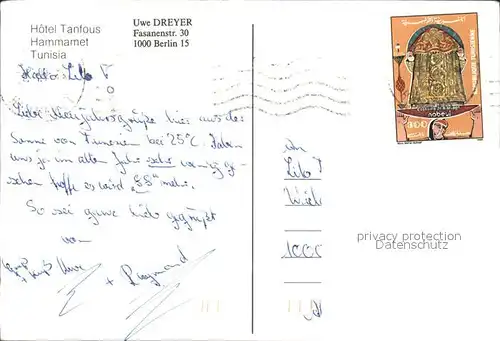 Hôtel Tanfous
Hammamet
Tunisia
Uwe DREYER
Fasanenstr. 30
1000 Berlin 15
Liebe Neujahrsgrüße hier aus der
Sonne von Tunesien bei 25°C. Haben
uns ja im alten Jahr sehr wenig ge-
sehen hoffe es wird "88" mehr.
So sei ganz lieb gegrüßt
von
Uwe
+ Raymond
an
Lilo
1000
REPUBLIQUE TUNISIENNE
nabeul
privacy protection
Datenschutz